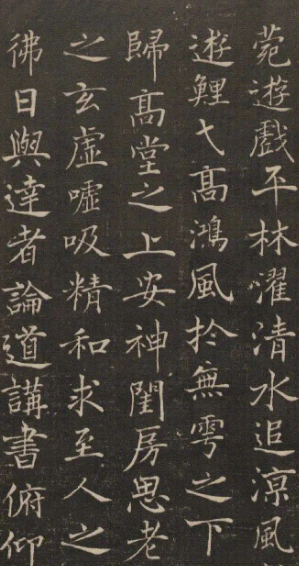 菀遊戲平林濯清水追涼風
遊鯉弋髙鴻風扵無雩之下
歸髙堂之上安神閨房思老
之玄虛嘘吸精和求至人之
彿日與達者論道講書俯仰